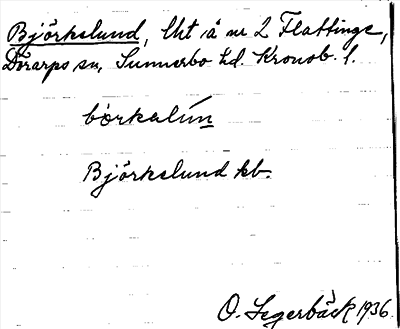 Björkslund, lht å nr 2 Flattinge,
Dörarps sn, Sunnerbo hd. Kronob. l.
börkalún
Björkslund kb.
O. Segerbäck 1936.